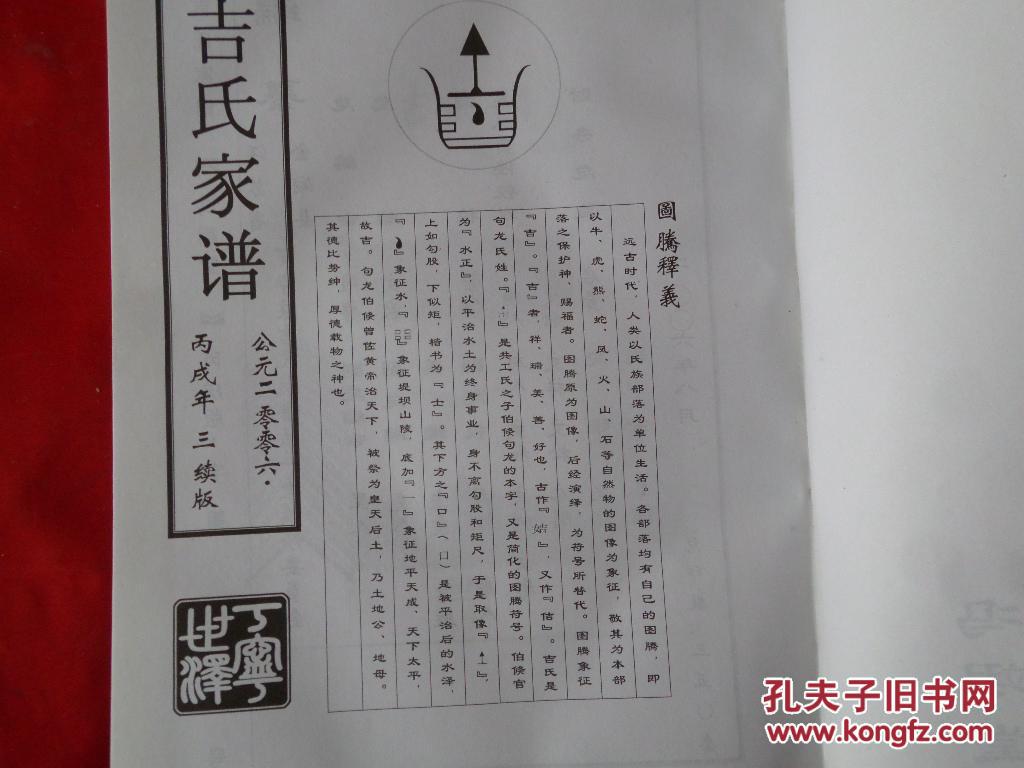 吉氏家谱
公元二零零六·
丙戌年三续版
圖騰釋義
远古时代，人类以氏族部落为单位生活。各部落均有自己的图腾，即
以牛、虎、熊、蛇、风、火、山、石等自然物的图像为象征，敬其为本部
落之保护神、赐福者。图腾原为图像，后经演绎，为符号所替代。图腾象征
『吉』。『吉』者，祥、瑞、美、善、好也，古作『姞』，又作『佶』。吉氏是
句龙氏姓。『』是共工氏之子伯候句龙的本字，又是简化的图腾符号。伯候官
为『水正』，以平治水土为终身事业，身不离勾股和矩尺，于是取像『』，
上如勾股，下似矩，楷书为『士』。其下方之『口』（口）是被平治后的水泽，
『』象征水，『』象征堤坝山陵，底加『一』象征地平天成、天下太平，
故吉。句龙伯候曾佐黄帝治天下，被祭为皇天后土，乃土地公、地母。
其德比势绅，厚德载物之神也。
丁寧
世澤
孔夫子旧书网
www.kongfz.com